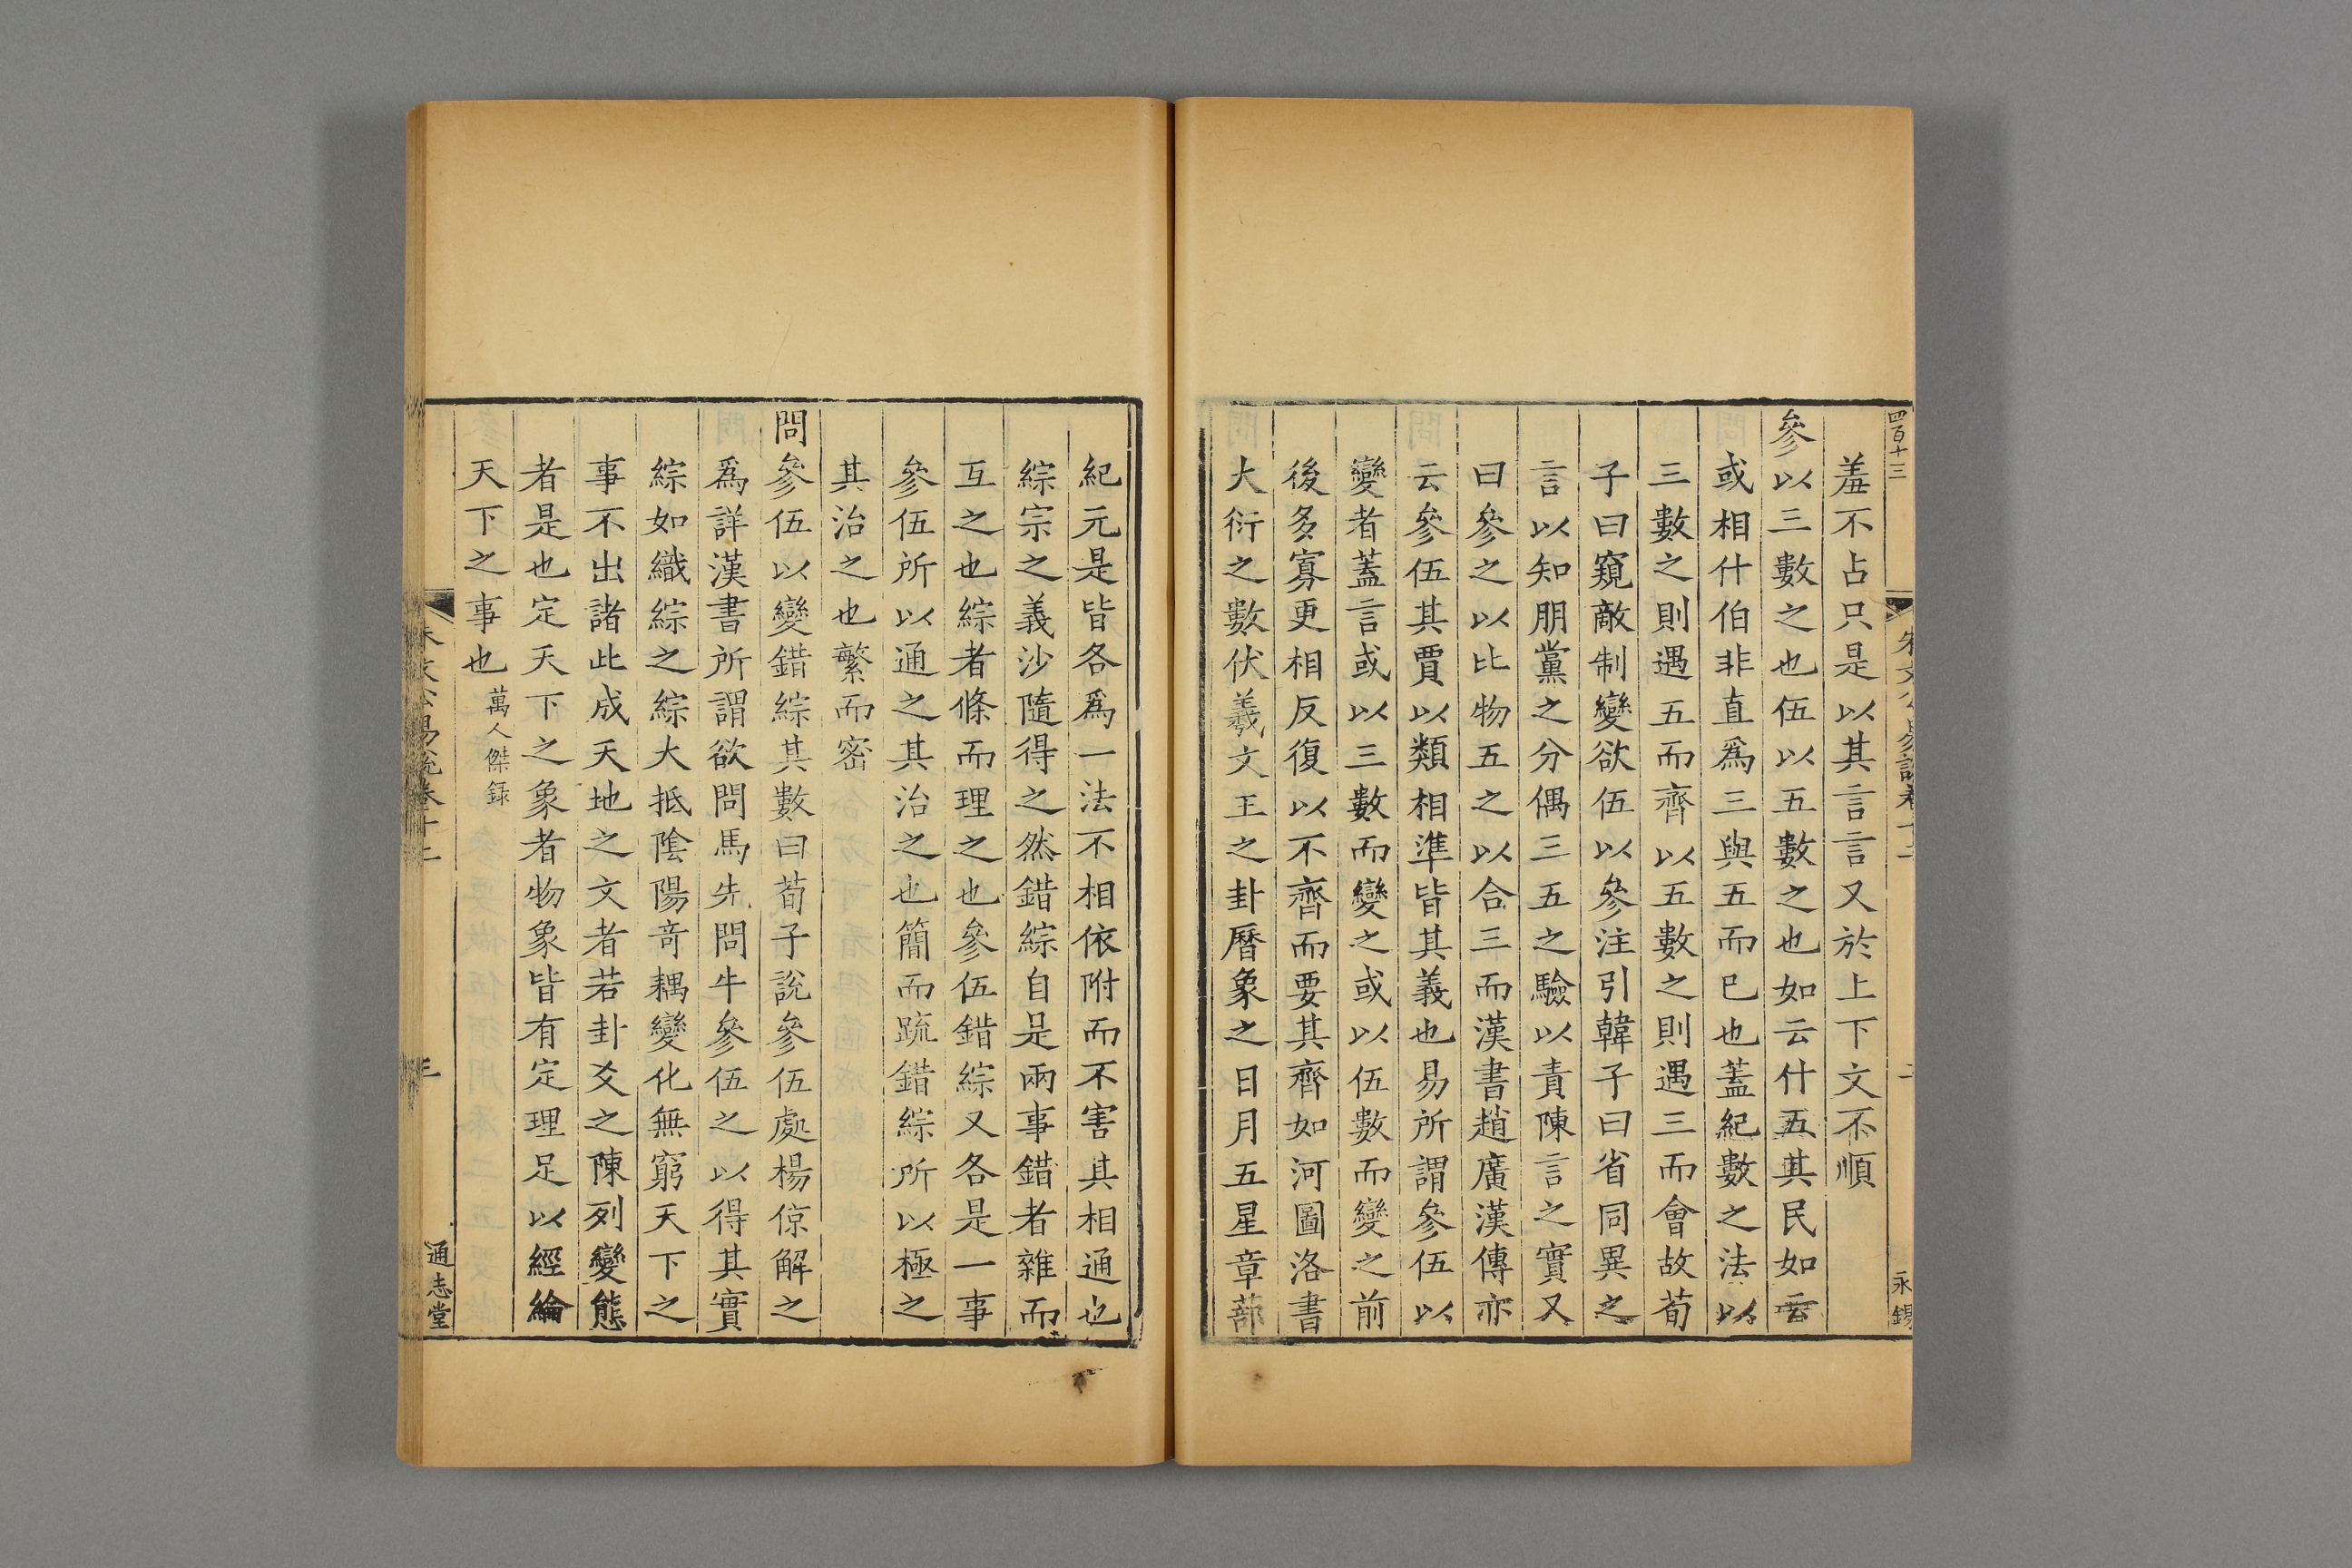 四百十三
朱文公易說卷十二
二
永錫
羞不占只是以其言言又於上下文不順
參以三數之也伍以五數之也如云什五其民如云
或相什伯非直爲三與五而已也蓋紀數之法以
三數之則遇五而齊以五數之則遇三而會故荀
子曰窺敵制變欲伍以參注引韓子曰省同異之
言以知朋黨之分偶三五之驗以責陳言之實又
曰參之以比物五之以合三而漢書趙廣漢傳亦
云參伍其賈以類相準皆其義也易所謂參伍以
變者蓋言或以三數而變之或以伍數而變之前
後多寡更相反復以不齊而要其齊如河圖洛書
大衍之數伏羲文王之卦曆象之日月五星章蔀
紀元是皆各爲一法不相依附而不害其相通也
綜宗之義沙隨得之然錯綜自是兩事錯者雜而
互之也綜者條而理之也參伍錯綜又各是一事
參伍所以通之其治之也簡而疏錯綜所以極之
其治之也繁而密
問參伍以變錯綜其數曰荀子說參伍處楊倞解之
爲詳漢書所謂欲問馬先問牛參伍之以得其實
綜如織綜之綜大抵陰陽奇耦變化無窮天下之
事不出諸此成天地之文者若卦爻之陳列變態
者是也定天下之象者物象皆有定理足以經綸
天下之事也萬人傑録
朱文公易說卷十二
三
通志堂